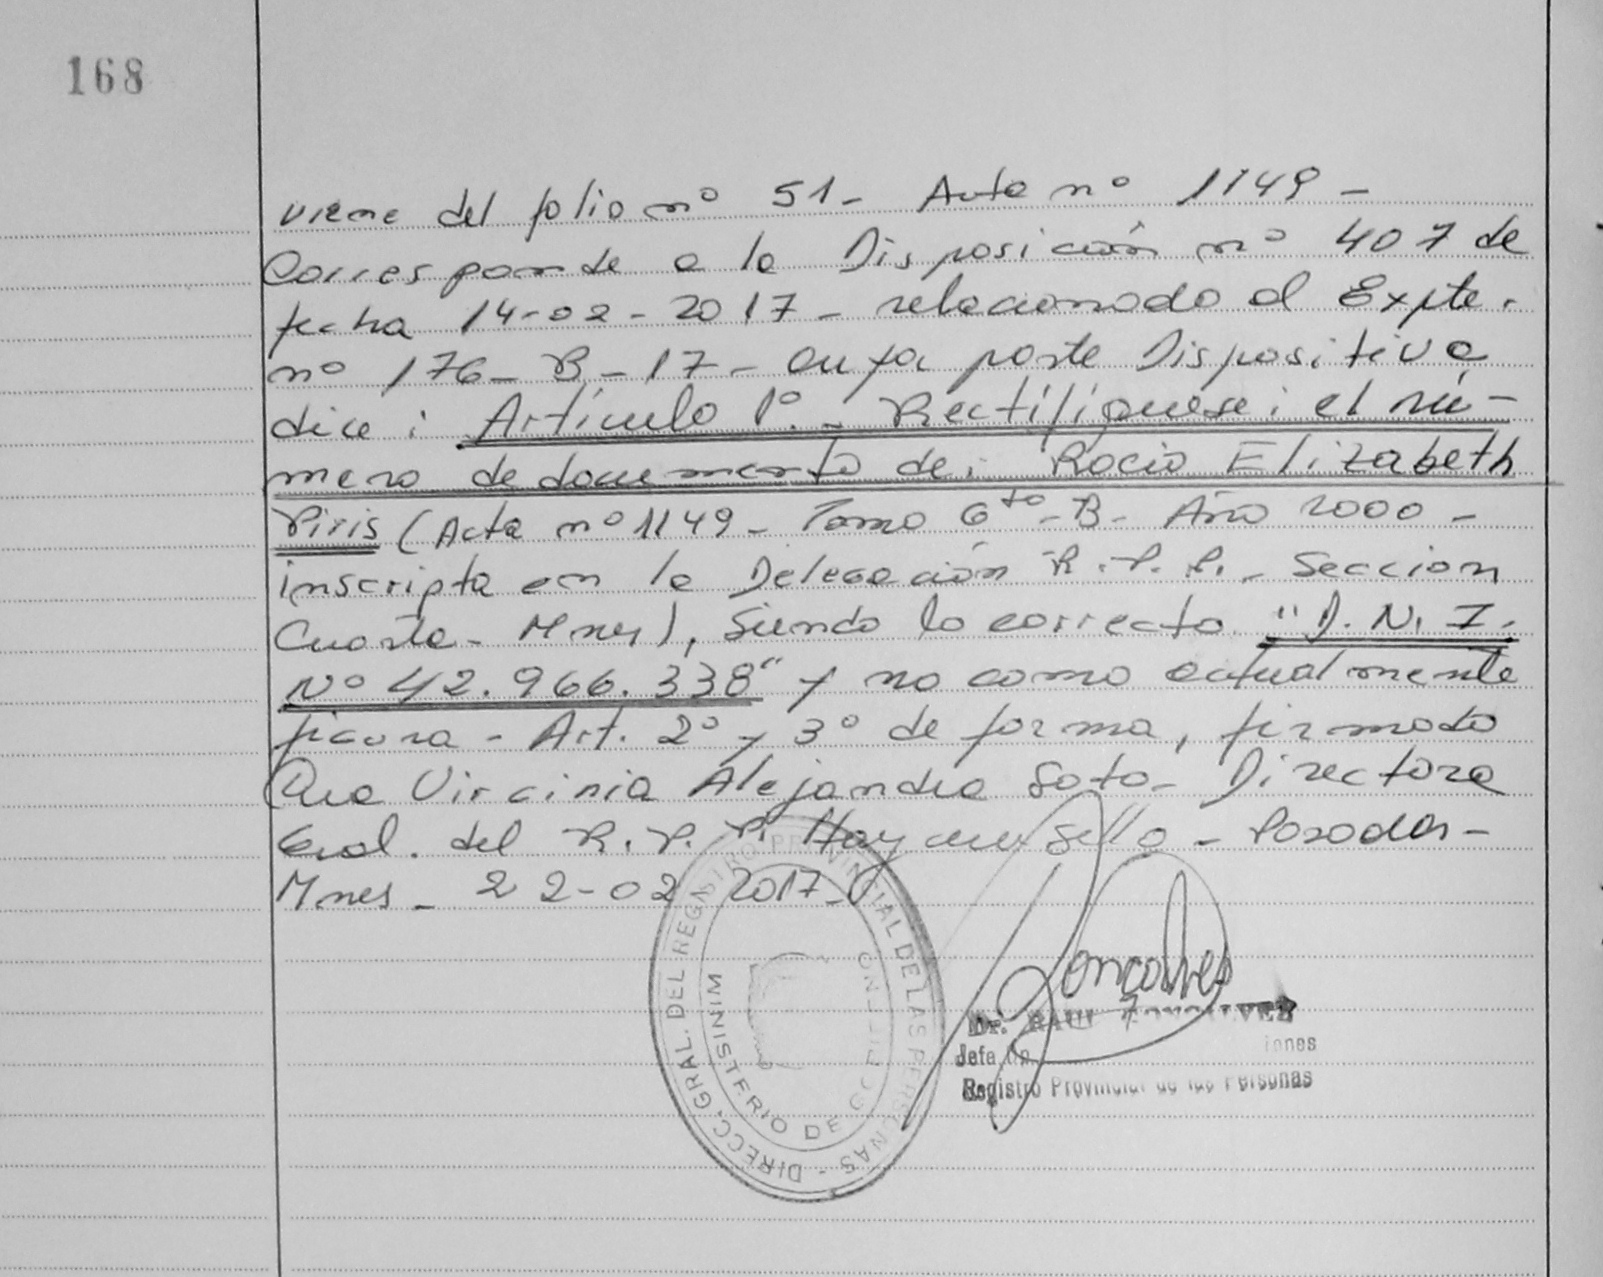 168
viene del folio nº 51- Acta nº 1149-
Corresponde a la Disposición nº 407 de
fecha 14-02-2017- relacionado al Expte.
nº 176-B-17- cuya parte Dispositiva
dice: Artículo 1º.- Rectifíquese: el nú-
mero de documento de: Rocio Elizabeth
Piris (Acta nº 1149- Tomo 6to-B- Año 2000-
inscripta en la Delegación R.P.P.- Sección
Cuarta- Mnes), Siendo lo correcto "D.N.I.
Nº 42.966.338" y no como actualmente
figura- Art. 2º y 3º de forma, firmado
Dra Virginia Alejandra Soto- Directora
Gral. del R.P.P. Hay un Sello- Posadas-
Mnes- 22-02 2017-
DIRECC. GRAL. DEL REGISTRO PROVINCIAL DE LAS PERSONAS -
MINISTERIO DE GOBIERNO
Goncalves
Dr. RAUL
Jefe
Registro Provincial de las Personas